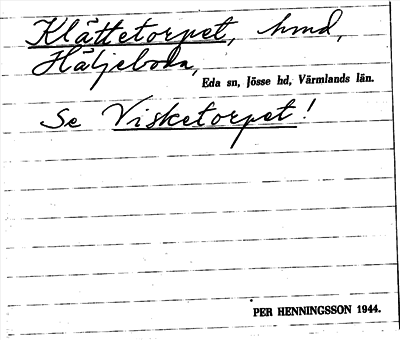 Klättetorpet, hmd,
Häljeboda,
Eda sn, Jösse hd, Värmlands län.
Se Visketorpet!
PER HENNINGSSON 1944.